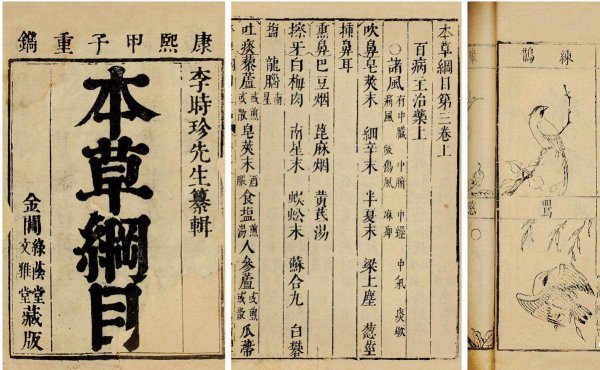 康熙甲子重鐫
李時珍先生纂輯
本草綱目
金閶
綠蔭堂
文雅堂
藏版
本草綱目第三卷上
百病主治藥上
○諸風 有中臟 中腑 中經 中氣 痰厥
痛風 破傷風 麻痺
吹鼻皂莢末 細辛末 半夏末 梁上塵 葱莖
插鼻耳
熏鼻巴豆烟 蓖麻烟 黄芪湯
擦牙白梅肉 南星末 蜈蚣末 蘇合丸 白礬
塩 龍腦 南星
吐痰藜蘆或煎或散 皂莢末酒服 食塩煎湯 人參蘆或煎或散 瓜蒂
練鵲